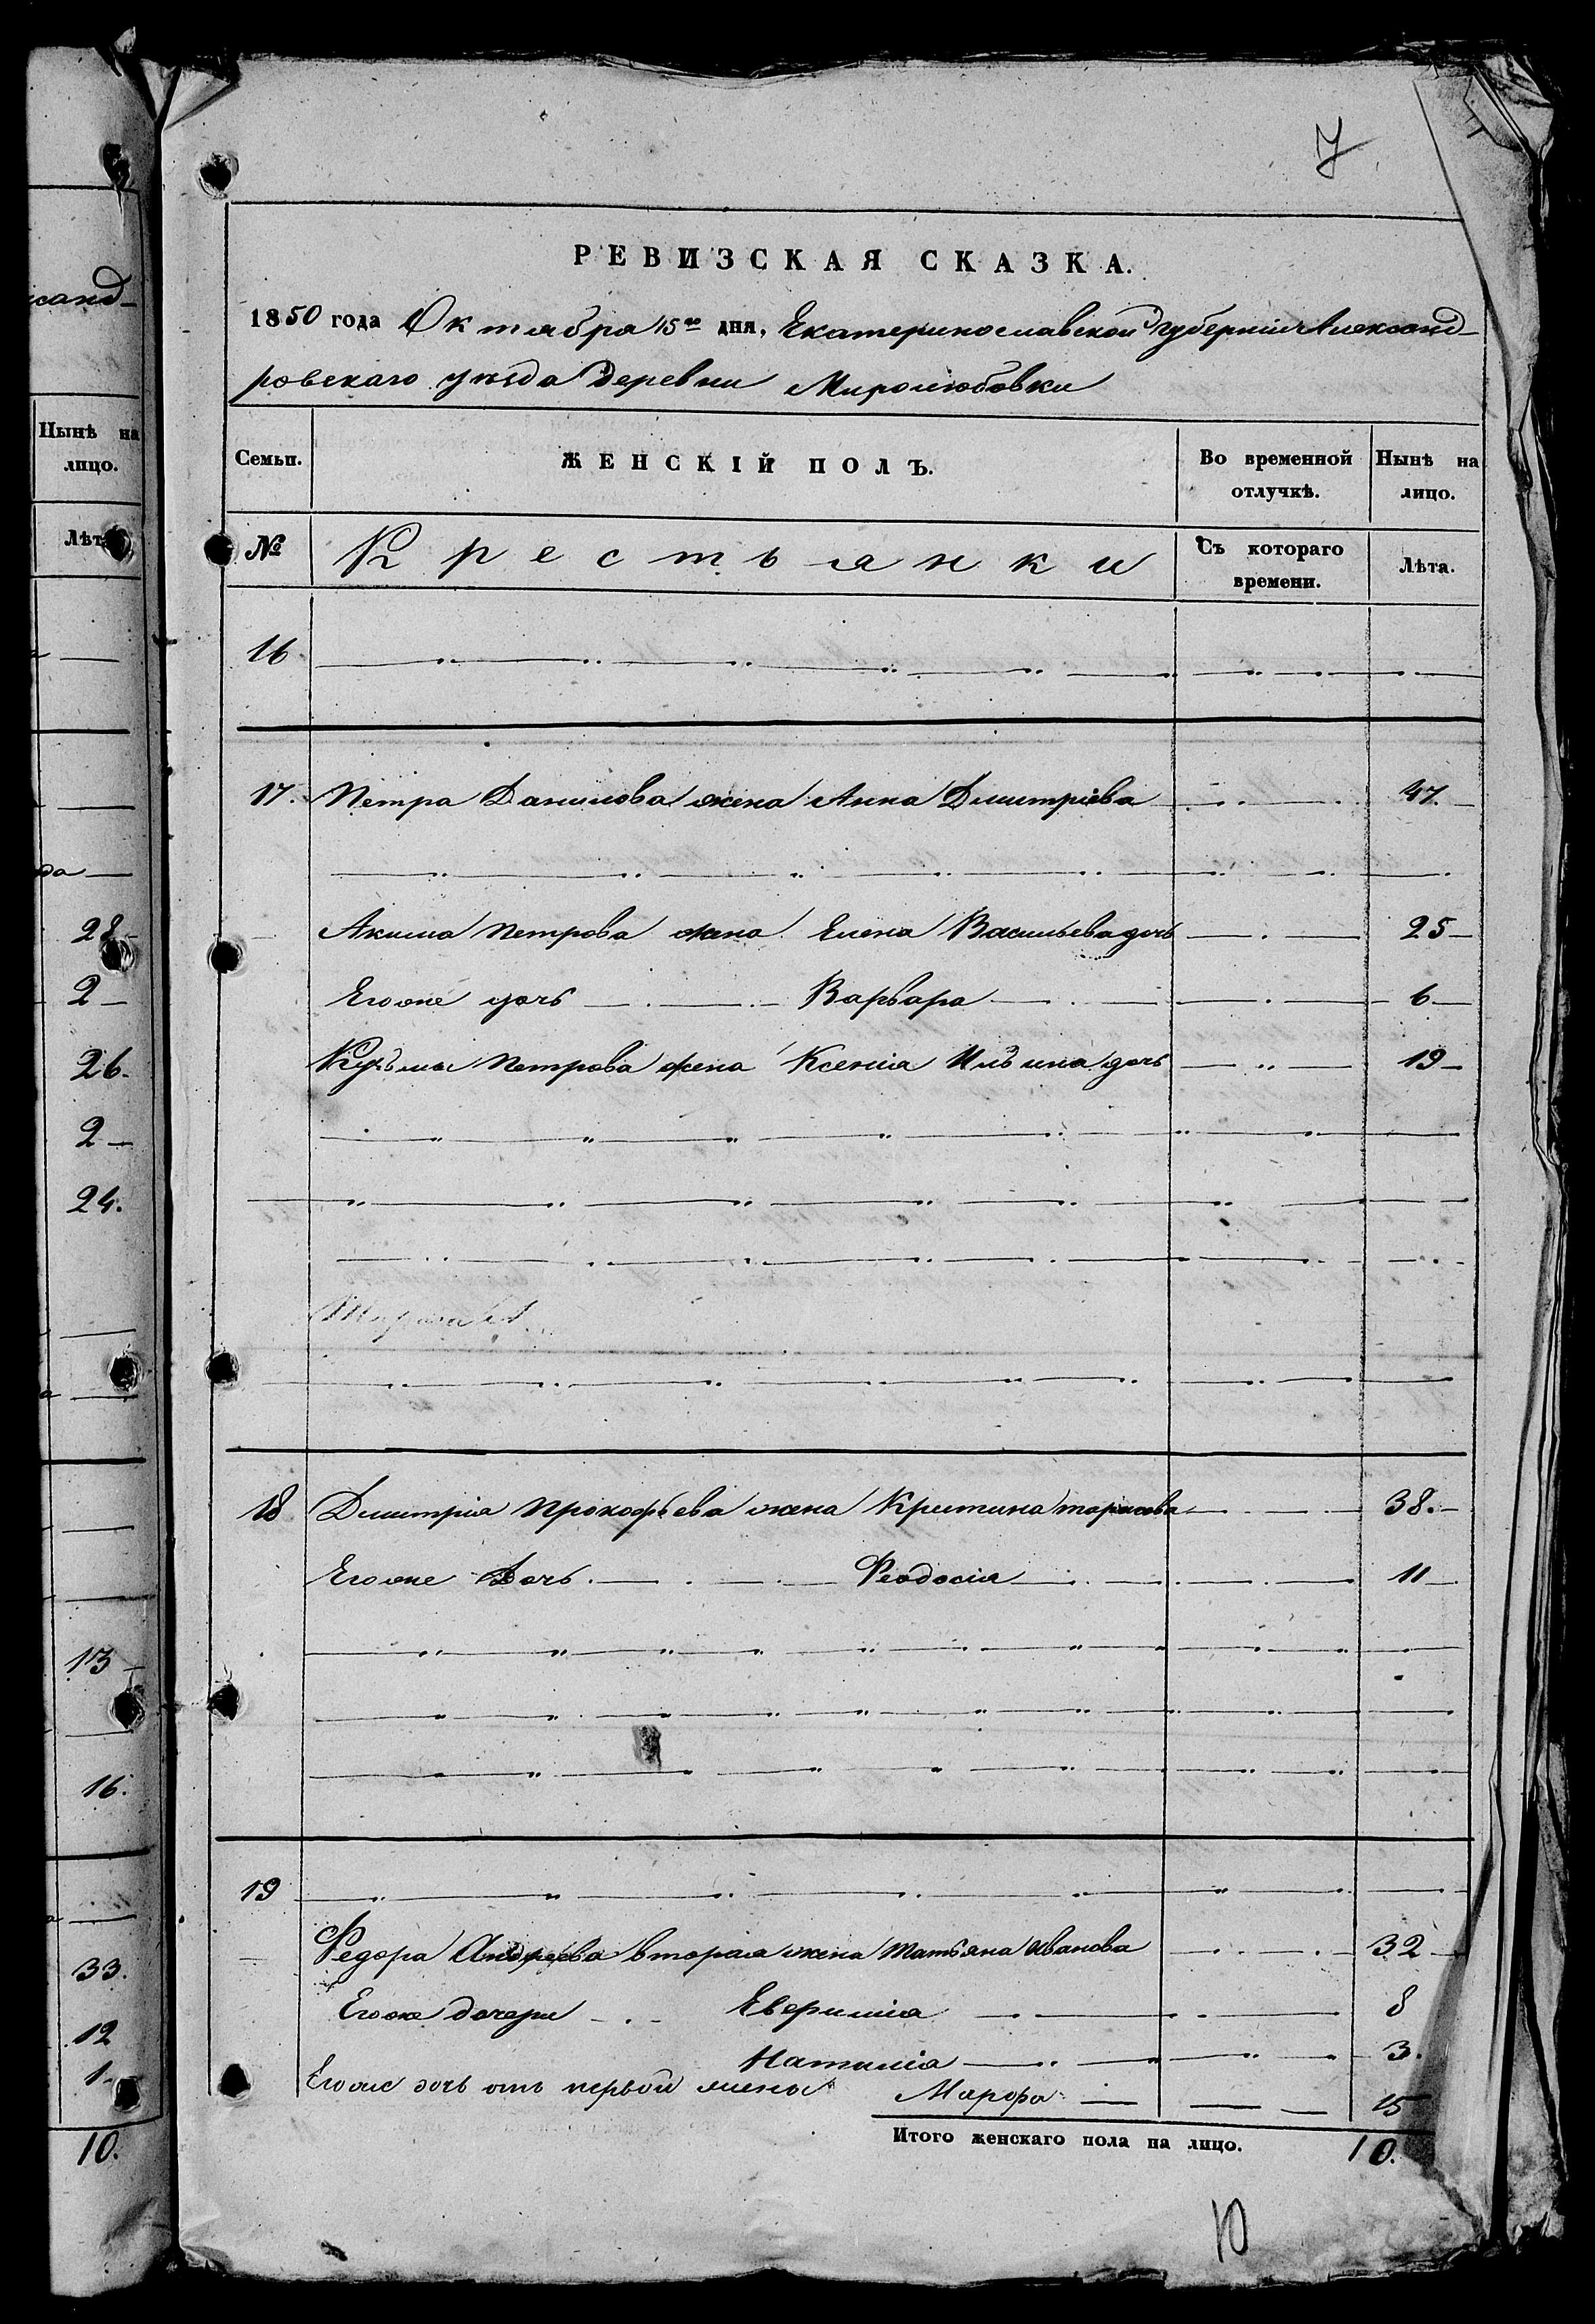 7
РЕВИЗСКАЯ СКАЗКА.
1850 года Октября 15го дня, Екатеринославской Губерніи Александ-
ровскаго уѣзда Деревни Миролюбовки
Семьи. ЖЕНСКІЙ ПОЛЪ. Во временной отлучкѣ. Нынѣ на лицо.
№ Крестьянки Съ котораго времени. Лѣта.
16
17. Петра Данилова жена Анна Дмитріева 47.
Акима Петрова жена Елена Васильева дочь 25
Егоже дочь Варвара 6
Кузьмы Петрова жена Ксенія Ильина дочь 19
18 Дмитрія Прокофьева жена Кристина Тарасова 38.
Егоже Дочь Феодосія 11
19
Федора Андреева вторая жена Татьяна Иванова 32
Егоже дочери Евфимія 8
Наталія 3.
Егоже дочь отъ первой жены Марфа 15
Итого женскаго пола на лицо. 10.
10
санд-
Нынѣ на
лицо.
Лѣта
28
2
26.
2
24.
13
16.
33.
12
1
10.